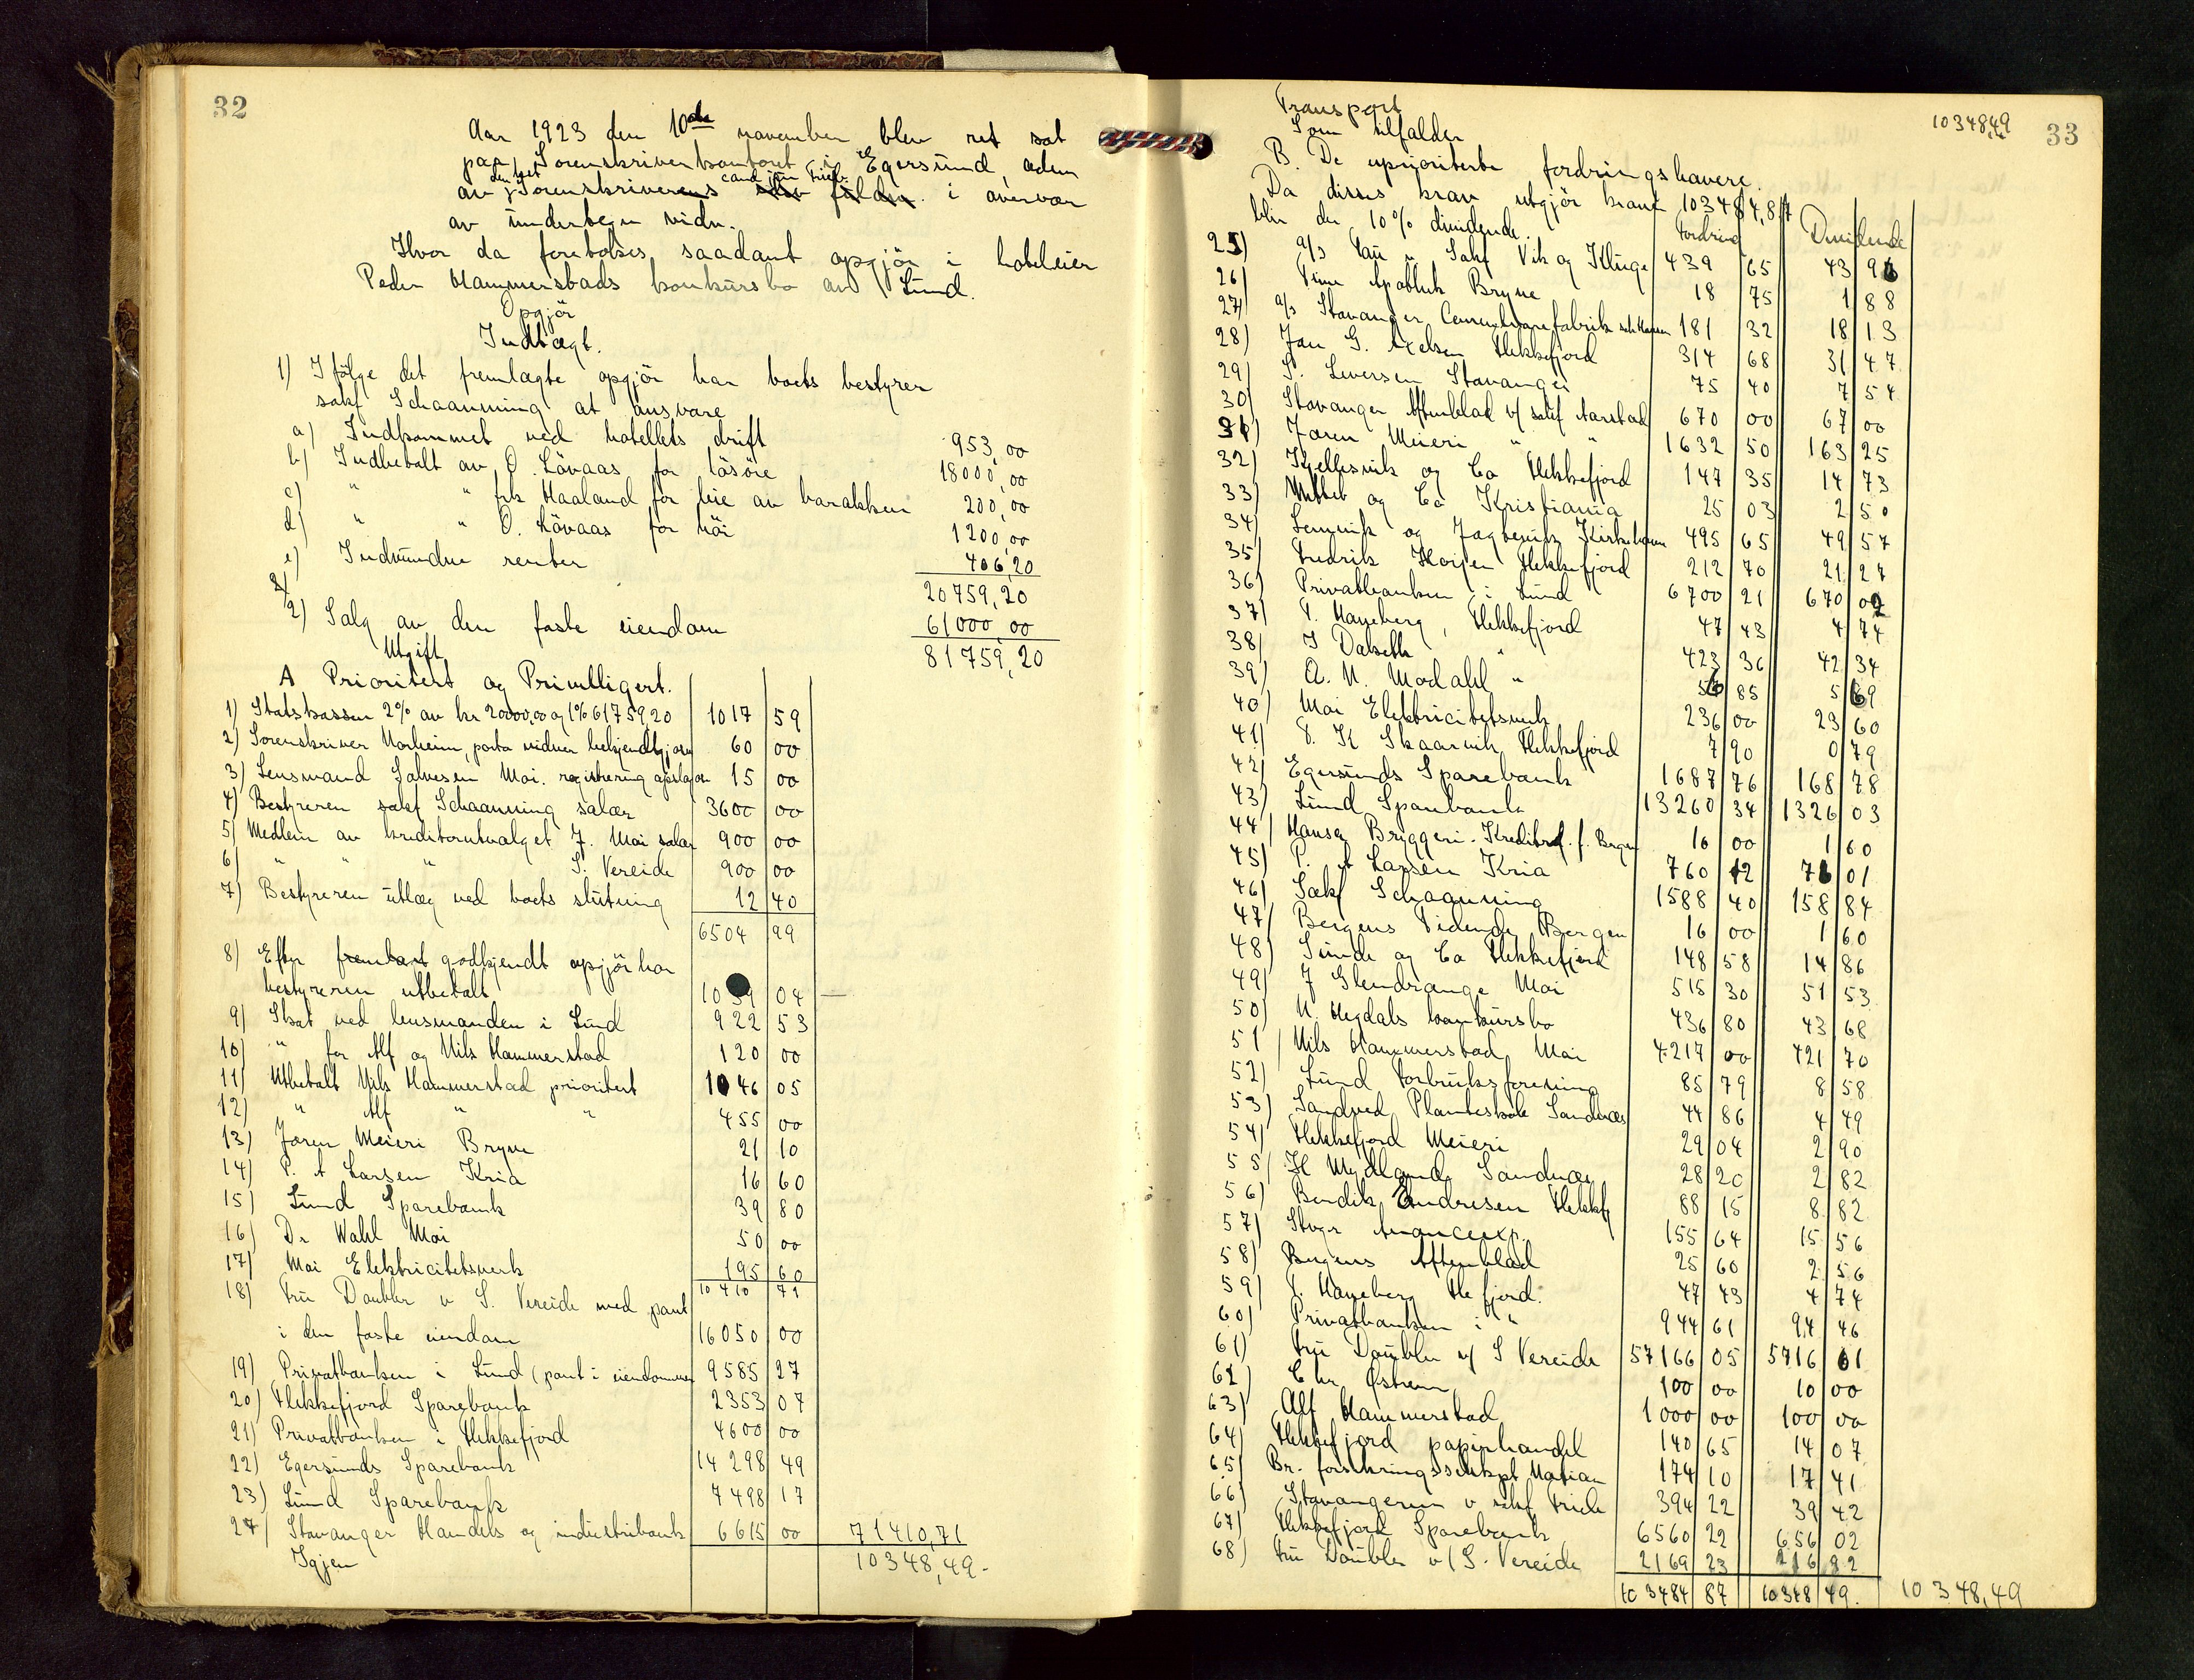 32
Aar 1923 den 10de november blev ret sat
paa Sorenskriverkontoret i Egersund, adm
av den kst Sorenskriverens cand jur Trieb. fuldm. i overvær
av undertegn vidn.
Hvor da foretokes saadant opgjör i hoteleier
Peder Hammerstads konkursbo av Lund.
Opgjör
Indtægt.
1) Ifölge det fremlagte opgjör har boets bestyrer
sakf Schaanning at ansvare
a) Indkommet ved hotellets drift 953,00
b) Indbetalt av O. Lövaas for lösöre 18000,00
c) " " frk Haaland for leie av barakken 200,00
d) " " O. Lövaas for höi 1200,00
e) Indvundne renter 406,20
20759,20
2) Salg av den faste eiendom 61000,00
81759,20
Utgift
A Prioritert og Privilligert.
1) Statskassen 2% av kr 20000,00 og 1% 61759,20 1017 59
2) Sorenskriver Norheim, porto vidner bekjendtgjøres 60 00
3) Lensmand Salvesen Moi. registrering opslag 15 00
4) Bestyreren sakf Schaanning salær 3600 00
5) Medlem av kreditorutvalget J. Moi salær 900 00
6) " " " S. Vereide 900 00
7) Bestyreren utlæg ved boets slutning 12 40
6504 99
8) Efter fremlagt godkjendt opgjör har
bestyreren utbetalt 1039 04
9) Skat ved lensmanden i Lund 922 53
10) " for Alf og Nils Hammerstad 120 00
11) Utbetalt Nils Hammerstad prioritert 1046 05
12) " Alf " " 455 00
13) Jæren Meieri Bryne 21 10
14) P. A Larsen Kria 16 60
15) Lund Sparebank 39 80
16) Dr Wahl Moi 50 00
17) Moi Elektricitetsverk 195 60
10410 71
18) Fru Doubler v S. Vereide med pant
i den faste eiendom 16050 00
19) Privatbanken i Lund (pant i eiendommen 9585 27
20) Flekkefjord Sparebank 2353 07
21) Privatbanken i Flekkefjord 4600 00
22) Egersunds Sparebank 14298 49
23) Lund Sparebank 7498 17
24) Stavanger Handels og industribank 6615 00 71410,71
Igjen 10348,49.
33
Transport 10348,49
Som tilfalder
B. De uprioriterte fordringshavere.
Da disses krav utgjör kront 103484,87
blir der 10% dividende. Fordring Dividende
25) a/s Tau v Sakf Vik og Kluge 439 65 43 96
26) Time Apothek Bryne 18 75 1 88
27) a/s Stavanger Cementvarefabrik 181 32 18 13
28) Jan G. Axelsen Flekkefjord 314 68 31 47
29) S. Leversen Stavanger 75 40 7 54
30) Stavanger Aftenblad v/ sakf Aarstad 670 00 67 00
31) Jæren Meieri " " 1632 50 163 25
32) Kjellesvik og Co Flekkefjord 147 35 14 73
33) og Co Kristiania 25 03 2 50
34) Lervik og Jagtevik Kirkehavn 495 65 49 57
35) Fredrik Hoijen Flekkefjord 212 70 21 27
36) Privatbanken i Lund 6700 21 670 02
37) T. Haneberg, Flekkefjord 47 43 4 74
38) J Dalseth " 423 36 42 34
39) A. N. Modahl " 56 85 5 69
40) Moi Elektricitetsverk 236 00 23 60
41) T. K Skaarvik Flekkefjord 7 90 0 79
42) Egersunds Sparebank 1687 76 168 78
43) Lund Sparebank 13260 34 1326 03
44) Hansa Bryggeri. Kreditorf. f. Bergen 16 00 1 60
45) P. A Larsen Kria 760 12 76 01
46) Sakf Schaanning 1588 40 158 84
47) Bergens Tidende Bergen 16 00 1 60
48) Sunde og Co Flekkefjord 148 58 14 86
49) J Glendrange Moi 515 30 51 53
50) N. Hegdals konkursbo 436 80 43 68
51) Nils Hammerstad Moi 4217 00 421 70
52) Lund Forbruksforening 85 79 8 58
53) Sandved Planteskole Sandnæs 44 86 4 49
54) Flekkefjord Meieri 29 04 2 90
55) H Mydland Sandnæs 28 20 2 82
56) Bendik Endresen Flekkfj 88 15 8 82
57) Stvgr Anonceexp. 155 64 15 56
58) Bergens Aftenblad 25 60 2 56
59) T. Haneberg Flefjord. 47 43 4 74
60) Privatbanken i " 944 61 94 46
61) Fru Doubler v/ S Vereide 57166 05 5716 61
62) Chr Østrem 100 00 10 00
63) Alf Hammerstad 1000 00 100 00
64) Flekkefjord papirhandel 140 65 14 07
65) Br. forsikringsselskpt Norian 174 10 17 41
66) Stavangeren v sakf Tride 394 22 39 42
67) Flekkefjord Sparebank 6560 22 656 02
68) Fru Doubler v/ S. Vereide 2169 23 216 92
103484 87 10348 49. 10348,49